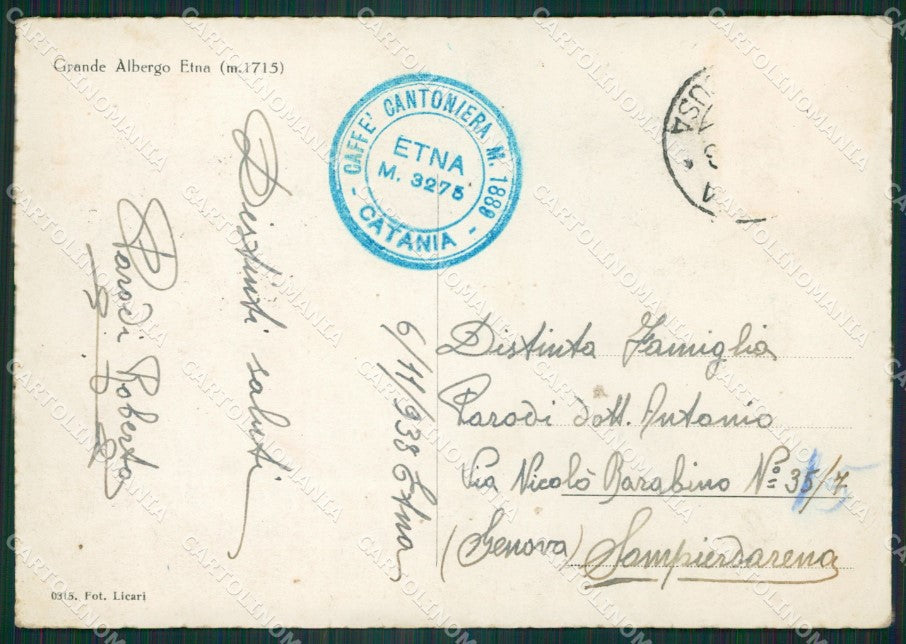 Grande Albergo Etna (m.1715)
CAFFE' CANTONIERA M. 1880
ETNA
M. 3275
- CATANIA -
USA
Distinti saluti
Parodi Roberto
6/11/938 Etna
Distinta Famiglia
Parodi dott. Antonio
Via Nicolò Barabino Nº 35/7
(Genova) Sampierdarena
0315. Fot. Licari
CARTOLINOMANIA